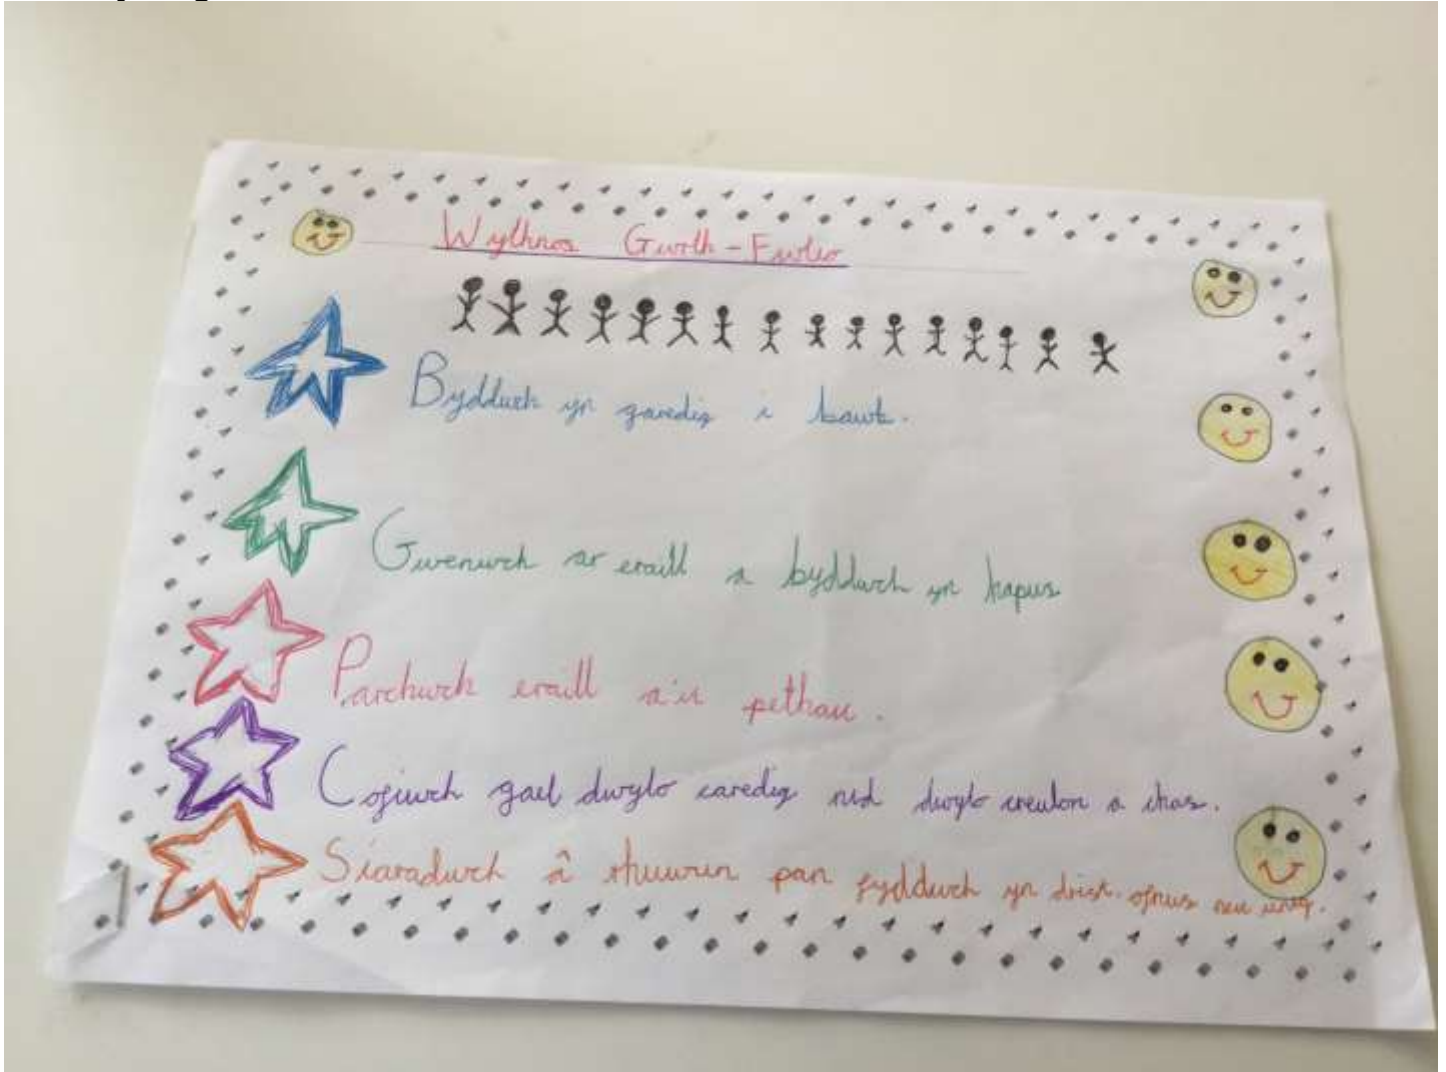 Wythnos Gwrth-Fwlio
Byddwch yn garedig i bawb.
Gwenwch ar eraill a byddwch yn hapus
Parchwch eraill a'u pethau.
Cofiwch gael dwylo caredig nid dwylo creulon a chas.
Siaradwch â rhuwun pan fyddwch yn drist. ofnus neu unig.